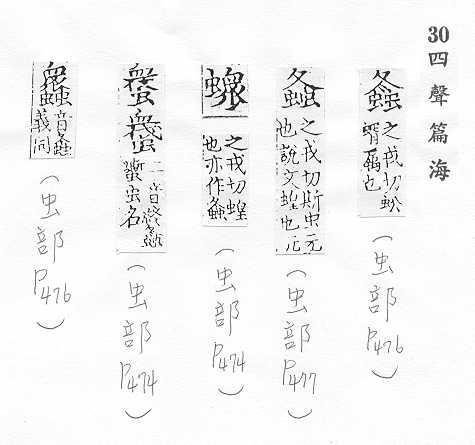 30四聲篇海
螽 之戎切蚣蝑也
(虫部P476)
螽 之戎切斯虫也說文蝗也
(虫部P477)
之戎切蝗也亦作螽
(虫部P474)
二音終螽虫名
(虫部P474)
音螽義同
(虫部P476)